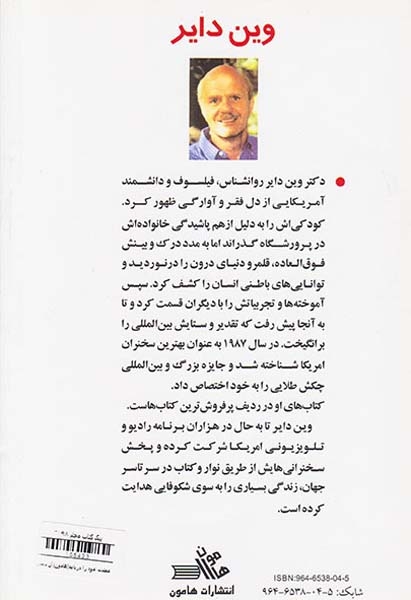 وین دایر
● دکتر وین دایر روانشناس، فیلسوف و دانشمند
آمریکایی از دل فقر و آوارگی ظهور کرد.
کودکی‌اش را به دلیل از هم پاشیدگی خانواده‌اش
در پرورشگاه گذراند اما به مدد درک و بینش
فوق‌العاده، قلمرو دنیای درون را درنوردید و
توانایی‌های باطنی انسان را کشف کرد. سپس
آموخته‌ها و تجربیاتش را با دیگران قسمت کرد و تا
به آنجا پیش رفت که تقدیر و ستایش بین‌المللی را
برانگیخت. در سال ۱۹۸۷ به عنوان بهترین سخنران
امریکا شناخته شد و جایزه بزرگ و بین‌المللی
چکش طلایی را به خود اختصاص داد.
کتاب‌های او در ردیف پرفروش‌ترین کتاب‌هاست.
وین دایر تا به حال در هزاران برنامه رادیو و
تلویزیونی امریکا شرکت کرده و پخش
سخنرانی‌هایش از طریق نوار و کتاب در سر تاسر
جهان، زندگی بسیاری را به سوی شکوفایی هدایت
کرده است.
هامون
انتشارات هامون
ISBN:964-6538-04-5
شابک: ۵-۰۴-۶۵۳۸-۹۶۴